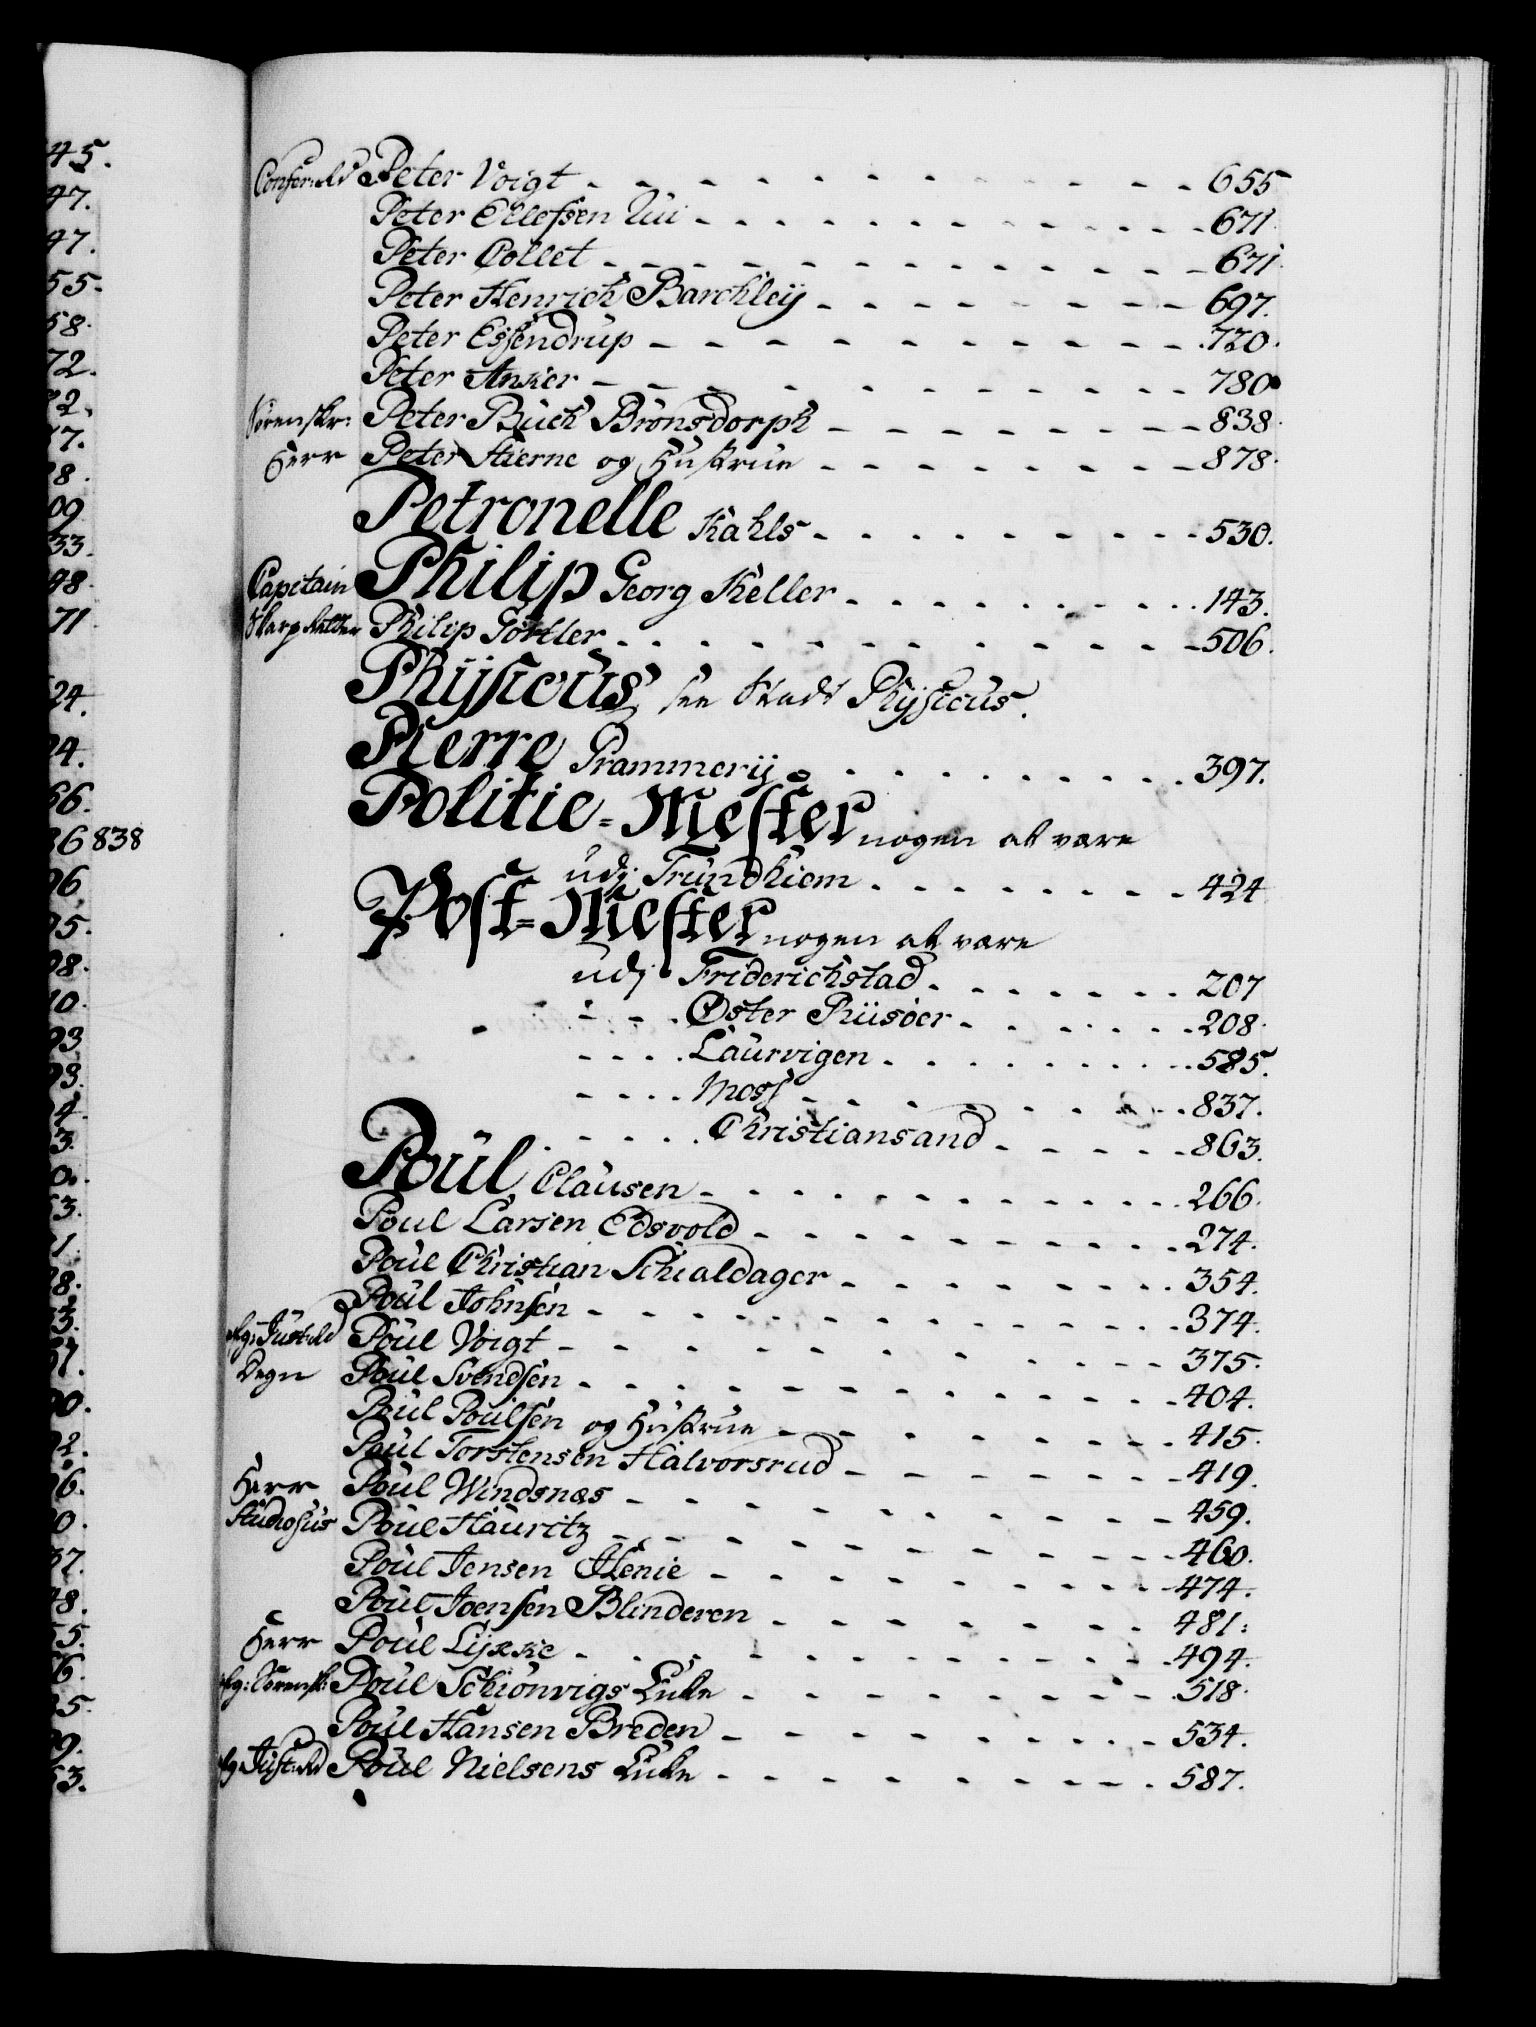 Confer: Rd Peter Voigt - - - - - - - - - - - 655
Peter Ellefsen - - - - - - - - - - 671
Peter Collet - - - - - - - - - - - 671
Peter Henrich Barchleÿ - - - - - - - 697.
Peter Essendrup - - - - - - - - - - 720.
Peter Anker - - - - - - - - - - 780
Sorenskr: Peter Buch Bronsdorph - - - - - - - - 838.
Herr Peter Stierne og Hustrue - - - - - - - - 878.
Petronelle Kahls - - - - - - - - - 530.
Capitain Philip Georg Keller - - - - - - - - - 143.
Skarp Retter Philip Görtler - - - - - - - - - - - 506.
Phÿsicus see Stads Phÿsicus.
Pierre Prammerÿ - - - - - - - - - 397.
Politie-Mester nogen at være
udj Trundhiem - - - - - - - - 424
Post-Mester nogen at være
udj Friderichstad - - - - - - - 207
- - - Öster Riisöer - - - - - - 208.
- - - - Laurvigen - - - - - - - - 585.
- - - - Moss - - - - - - - - 837.
- - - - Christiansand - - - - - 863.
Poul Clausen - - - - - - - - - - - 266.
Poul Larsen Edsvold - - - - - - - - - 274.
Poul Christian Schialdager - - - - - - - 354.
Poul Johnsen - - - - - - - - - - - 374.
Just: Rd Poul Voigt - - - - - - - - - - - 375.
Degn Poul Svendsen - - - - - - - - - - - 404.
Poul Poulsen og Hustrue - - - - - - - - 415.
Poul Torstensen Halvorsrud - - - - - - - 419.
Herr Poul Windsnæs - - - - - - - - - - 459.
Studiosus Poul Hauritz - - - - - - - - - - - 460.
Poul Jensen Henie - - - - - - - - - 474.
Poul Joensen Blinderen - - - - - - - 481.
Herr Poul Lykke - - - - - - - - - - - 494.
Sorensk: Poul Schiönvigs Enke - - - - - - - - 518.
Poul Hansen Breden - - - - - - - - 534.
Just: Rd Poul Nielsens Enke - - - - - - - - 587.